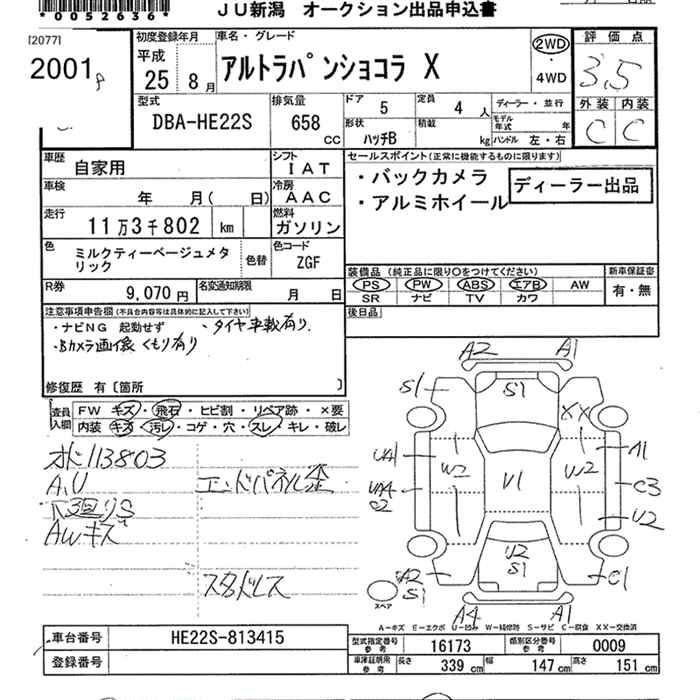 *0052636*
JU新潟 オークション出品申込書
[2077]
2001
初度登録年月
平成
25年 8月
車名・グレード
アルトラパンショコラ X
2WD
・
4WD
評価点
3.5
外装 内装
C C
型式
DBA-HE22S
排気量
658
CC
ドア
5
形状
ハッチB
定員
4 人
積載
kg
ディーラー・並行
モデル年式 年
ハンドル 左・右
車歴 自家用
シフト IAT
車検 年 月( 日)
冷房 AAC
走行 11万3千802 km
燃料 ガソリン
色 ミルクティーベージュメタリック
色替
色コード ZGF
R券 9,070円
名変通知期限 月 日
セールスポイント(正常に機能するものに限ります)
・バックカメラ
・アルミホイール
ディーラー出品
装備品(純正品に限り○をつけてください)
PS PW ABS エアB AW
SR ナビ TV カワ
新車保証書
有・無
後日品
注意事項申告欄(不具合内容等は具体的に記入して下さい)
・ナビNG 起動せず ・タイヤ車載有り.
・Bカメラ画像くもり有り
修復歴 有〔箇所 〕
査員入欄
FW キズ・飛石・ヒビ割・リペア跡・×要
内装 キズ・汚レ・コゲ・穴・スレ・キレ・破レ
113803
A,U
エンドパネル歪
AWキズ
スタドレス
A2 A1
S1 S1
XX
UA1 W2 V1 W2 A1
C2 C3
U2
U2
S1
A2
S1
C1
スペア
A4 A1
A-キズ E-エクボ U-凹み W-補修跡 S-サビ C-腐食 XX-交換済
車台番号 HE22S-813415
登録番号
型式指定番号 参考 16173
類別区分番号 参考 0009
車庫証明用 参考 長さ 339 cm 幅 147 cm 高さ 151 cm